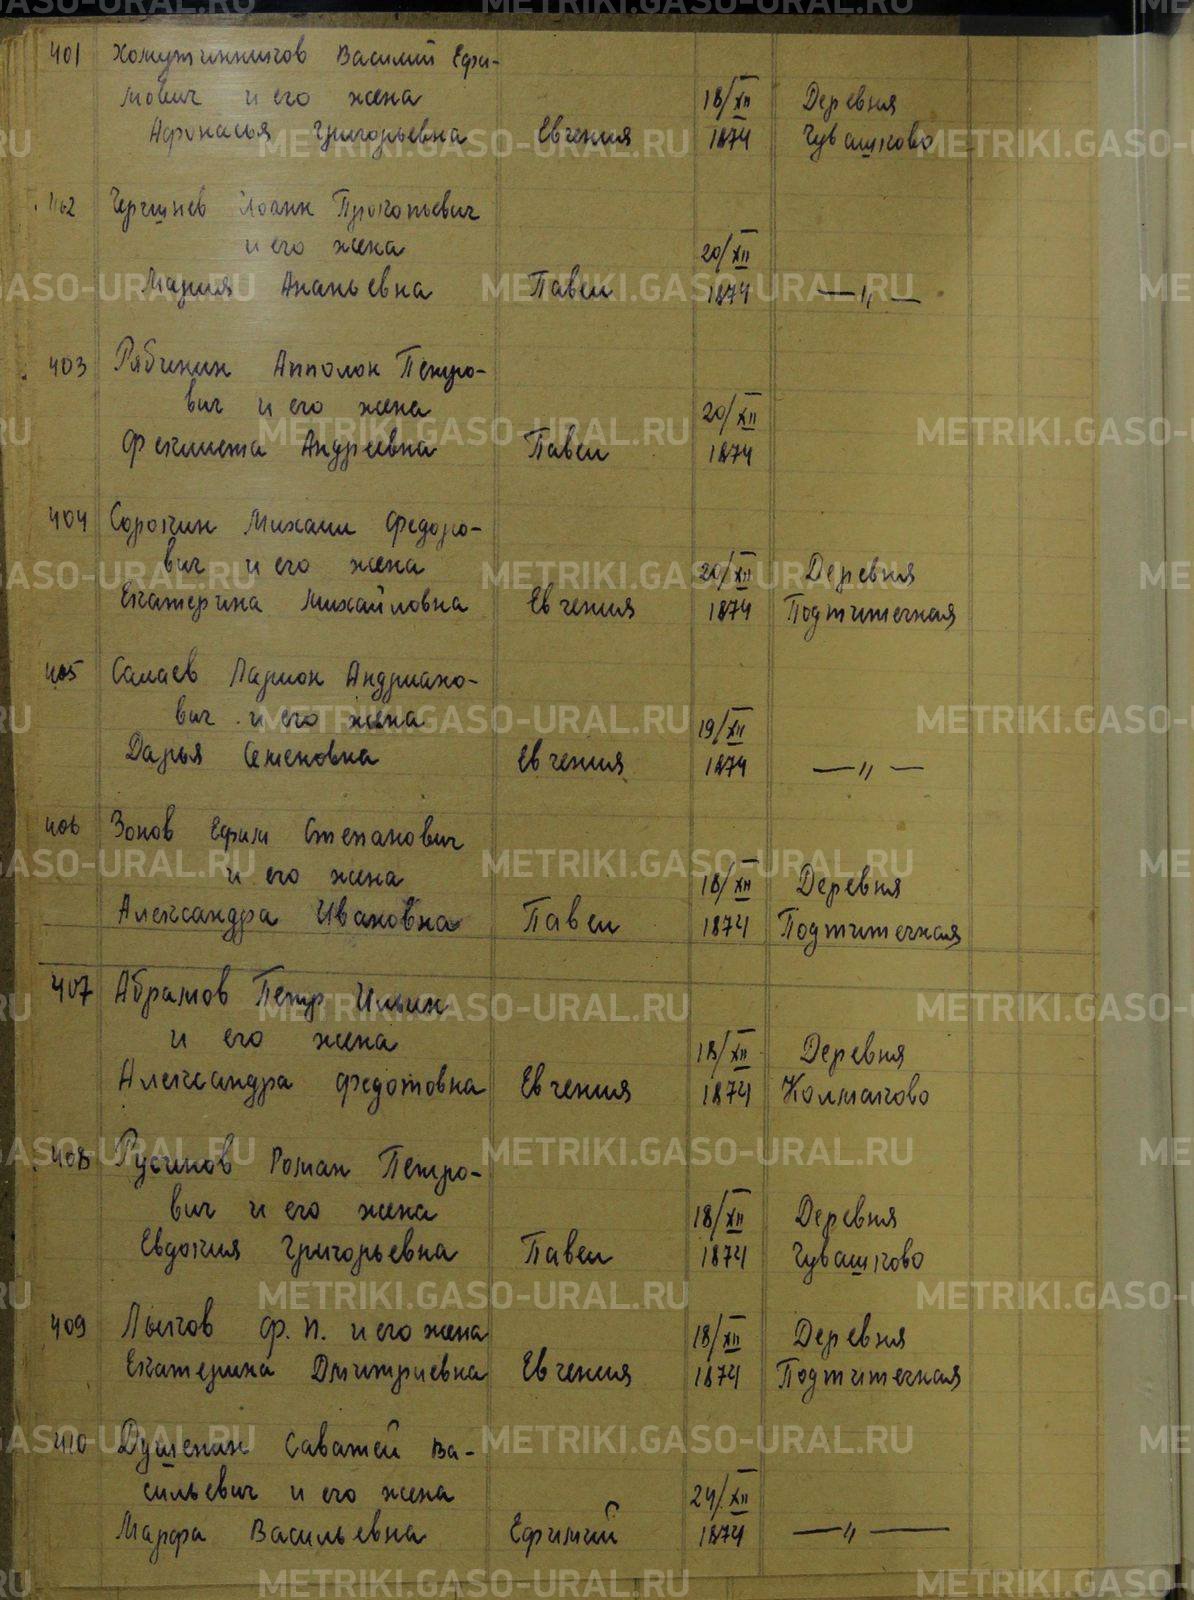 401 Хомутинников Василий Ефи-
мович и его жена 18/XII Деревня
Афонасья Григорьевна Евгения 1874 Чувашково
402 Чершнев Иоанн Прокопьевич
и его жена 20/XII
Мария Ананьевна Павел 1874 —„—
403 Рябинин Апполон Петро-
вич и его жена 20/XII
Феклиста Андреевна Павел 1874
404 Сорокин Михаил Федоро-
вич и его жена 20/XII Деревня
Екатерина Михайловна Евгения 1874 Подтитечная
405 Салаев Ларион Андриано-
вич и его жена 19/XII
Дарья Семеновна Евгения 1874 —„—
406 Зонов Ефим Степанович
и его жена 18/XII Деревня
Александра Ивановна Павел 1874 Подтитечная
407 Абрамов Петр Ильин
и его жена 18/XII Деревня
Александра Федотовна Евгения 1874 Колмаково
408 Русинов Роман Петро-
вич и его жена 18/XII Деревня
Евдокия Григорьевна Павел 1874 Чувашково
409 Лыков Ф. П. и его жена 18/XII Деревня
Екатерина Дмитриевна Евгения 1874 Подтитечная
410 Душенин Саватей Ва-
сильевич и его жена 24/XII
Марфа Васильевна Ефимий 1874 —„—
METRIKI.GASO-URAL.RU